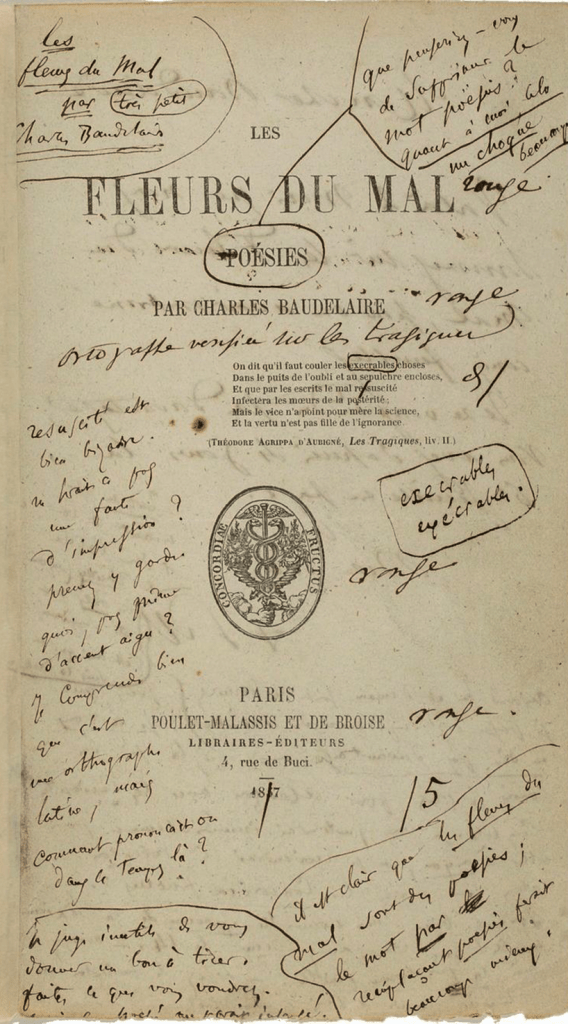 les
fleurs du Mal
par très petit
Charles Baudelaire
que penseriez-vous
de supprimer le
mot poësies?
quant à moi cela
me choque
beaucoup
LES
FLEURS DU MAL
rouge.
POÉSIES
PAR CHARLES BAUDELAIRE
rouge
ortografe sur les tragiques
On dit qu'il faut couler les execrables choses
Dans le puits de l'oubli et au sepulchre encloses,
Et que par les escrits le mal resuscité
Infectera les mœurs de la postérité;
Mais le vice n'a point pour mère la science,
Et la vertu n'est pas fille de l'ignorance
(THÉODORE AGRIPPA D'AUBIGNÉ, Les Tragiques, liv. II.)
resuscité est
bien bizarre.
ne serait-ce pas
une faute
d'impression?
prenez y garde
quoi, pas même
d'accent aigu?
Je comprends bien
que c'est
une orthographe
latine, mais
comment prononçait-on
dans ce temps là?
execrables
exécrables.
CONCORDIÆ FRUCTUS
rouge
PARIS
POULET-MALASSIS ET DE BROISE
rouge.
LIBRAIRES-ÉDITEURS
4, rue de Buci.
1857
5
il est clair que les fleurs du
mal sont des poësies;
le mot par
remplaçant poësies ferait
beaucoup mieux.
Je juge inutile de vous
donner un bon à tirer.
faites ce que vous voudrez.